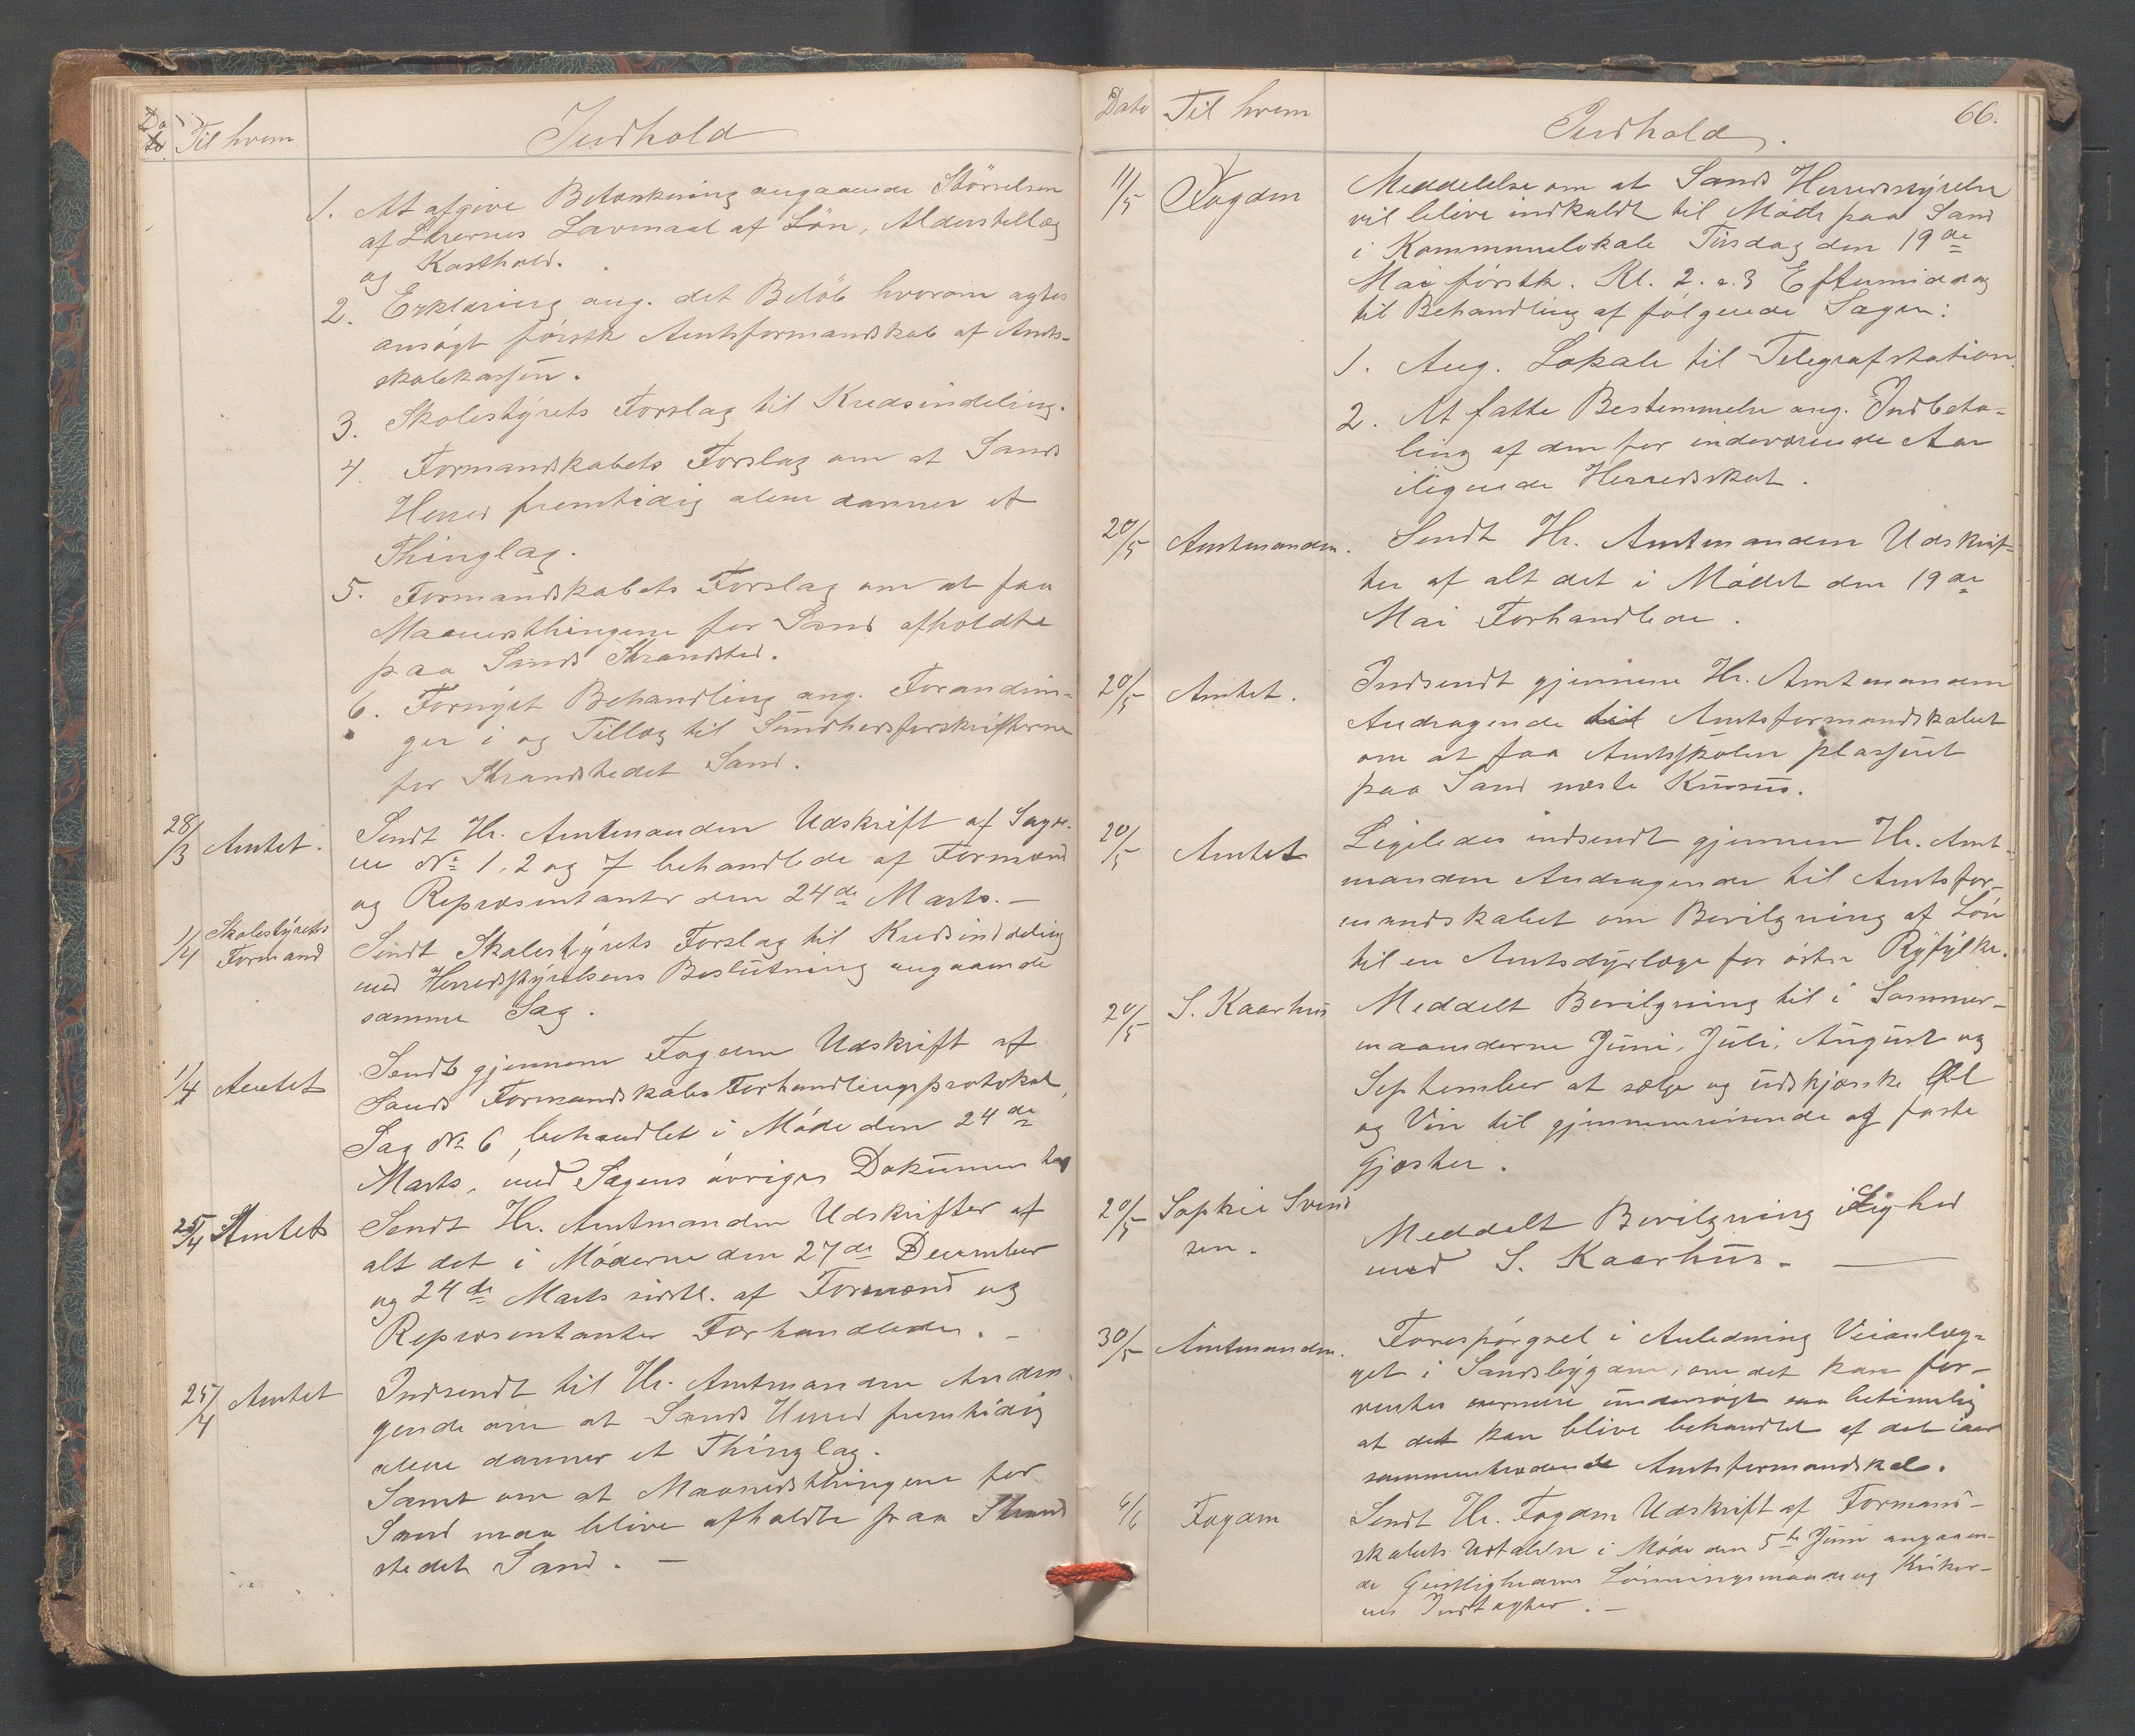 Dato Til hvem Indhold
1. At afgive Betænkning angaaende Störrelsen
af Lærernes Lavmaal af Lön, Alderstillæg
og Kosthold.
2. Erklæring ang. det Belöb hvorom agtes
ansögt förstk Amtsformandskab af Amts-
skolekassen.
3. Skolestyrets Forslag til Kredsindeling.
4. Formandskabets Forslag om at Sands
Herred fremtidig alene danner et
Thinglag.
5. Formandskabets Forslag om at faa
Maanedsthingene for Sand afholdte
paa Sands Strandsted.
6. Fornyet Behandling ang. Forandrin-
ger i og Tillæg til Sundhedsforskrifterne
for Strandstedet Sand.
28/3 Amtet. Sendt Hr. Amtmanden Udskrift af Sager-
ne No 1, 2 og 7 behandlede af Formænd
og Repræsentanter den 24de Marts. —
1/4 Skolestyrets Formand Sendt Skolestyrets Forslag til Kredsinddeling
med Herredsstyrelsens Beslutning angaaende
samme Sag.
1/4 Amtet Sendt gjennem Fogden Udskrift af
Sands Formandskabs Forhandlingsprotokol,
Sag No 6, behandlet i Möde den 24de
Marts, med Sagens övrige Dokumenter
25/4 Amtet Sendt Hr. Amtmanden Udskrifter af
alt det i Möderne den 27de December
og 24de Marts sidstl. af Formænd og
Repræsentanter Forhandlede. —
25/4 Amtet Indsendt til Hr. Amtmanden Andra-
gende om at Sands Herred fremtidig
alene danner et Thinglag.
Samt om at Maanedsthingene for
Sand maa blive afholdte paa Strand
stedet Sand. —
Dato Til hvem Indhold. 66.
11/5 Fogden Meddelelse om at Sands Herredsstyrelse
vil blive indkaldt til Möde paa Sand
i Kommunelokale Tirsdag den 19de
Mai förstk. Kl. 2. a. 3 Eftermiddag
til Behandling af fölgende Sager:
1. Ang. Lokale til Telegrafstation.
2. At fatte Bestemmelse ang. Indbeta-
ling af den for indeværende Aar
iligende Herredsskat.
20/5 Amtmanden. Sendt Hr. Amtmanden Udskrif-
ter af alt det i Mödet den 19de
Mai Forhandlede.
20/5 Amtet. Indsendt gjennem Hr. Amtmanden
Andragende til Amtsformandskabet
om at faa Amtsskolen plasseret
paa Sand næste Kursus.
20/5 Amtet Ligeledes indsendt gjennem Hr. Amt-
manden Andragende til Amtsfor-
mandskabet om Bevilgning af Lön
til en Amtsdyrlæge for östre Ryfylke.
20/5 S. Kaarhus Meddelt Bevilgning til i Sommer-
maanederne Juni, Juli, August og
September at sælge og udskjænke Öl
og Vin til gjennemreisende og faste
Gjæster.
20/5 Sophie Svend
sen. Meddelt Bevilgning i Lighed
med S. Kaarhus. —
30/5 Amtmanden. Forespörgsel i Anledning Veianlæg-
get i Sandsbygden, om det kan for-
ventes nærmere undersögt saa betimelig
at det kan blive behandlet af det iaar
sammentrædende Amtsformandskab.
6/6 Fogden Sendt Hr. Fogden Udskrift af Formand-
skabets Udtalelse i Möde den 5te Juni angaaen-
de Geistlighedens Lönningsmaade og Kirker-
nes Indtægter. —